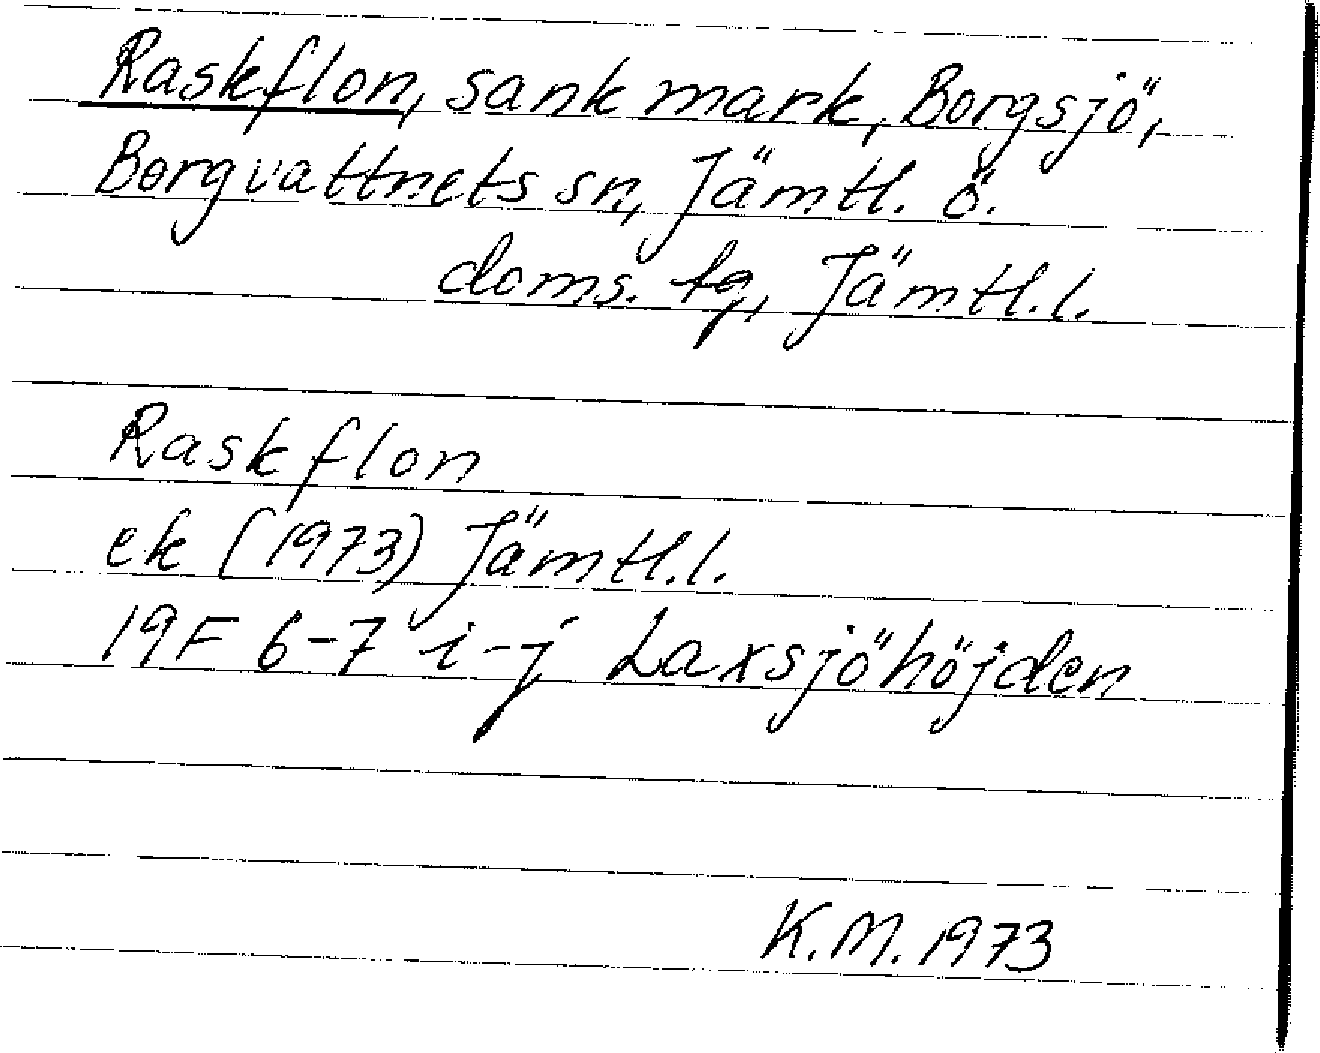 Raskflon, sank mark, Borgsjö,
Borgvattnets sn, Jämtl. ö.
doms. tg, Jämtl.l.
Raskflon
ek (1973) Jämtl.l.
19F 6-7 i-j Laxsjöhöjden
K.M. 1973